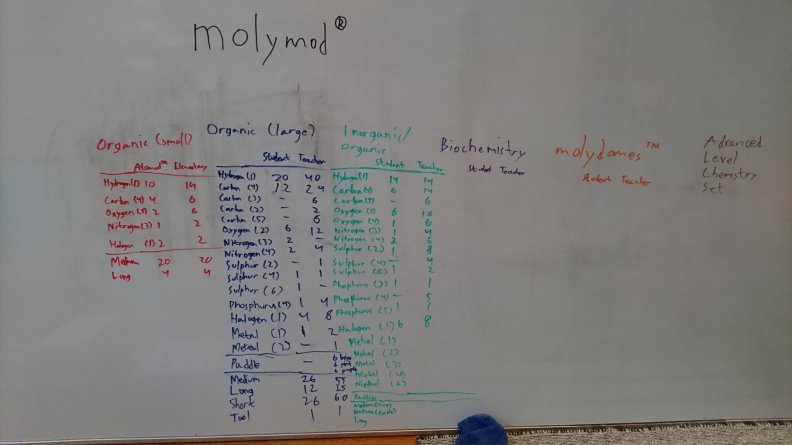 molymod®
Organic (small)
Elementary
Hydrogen (1) 10 14
Carbon (4) 4 6
Oxygen (2) 2 6
Nitrogen (3) 1 2
Halogen (1) 2 2
Medium 20 20
Long 4 4
Organic (large)
Student Teacher
Hydrogen (1) 20 40
Carbon (4) 12 24
Carbon (3) - 6
Carbon (2) - 2
Carbon (5) - 6
Oxygen (2) 6 12
Nitrogen (3) 2 -
Nitrogen (4) 2 4
Sulphur (2) - 1
Sulphur (4) 1 1
Sulphur (6) 1 -
Phosphurus (4) 1 4
Halogen (1) 4 8
Metal (1) 1 2
Metal (2) - 1
Paddle -
Medium 26 55
Long 12 25
Short 26 60
Tool 1 1
Inorganic/
Organic
Student Teacher
Hydrogen (1) 14 14
Carbon (4) 6 14
Carbon (3) - 6
Oxygen (2) 6 16
Oxygen (4) 1 6
Nitrogen (3) 1 4
Nitrogen (4) 2 6
Sulphur (2) 1 8
Sulphur (4) - 4
Sulphur (6) 1 2
Phosphurus (3) 1 1
Phosphurus (4) - 5
Phosphurus (5) 1 1
Halogen (1) 6 8
Metal (1)
Metal (2)
Metal (3)
Metal (4)
Metal (6)
Long
Biochemistry
Student Teacher
molydomes™
Student Teacher
Advanced
Level
Chemistry
Set